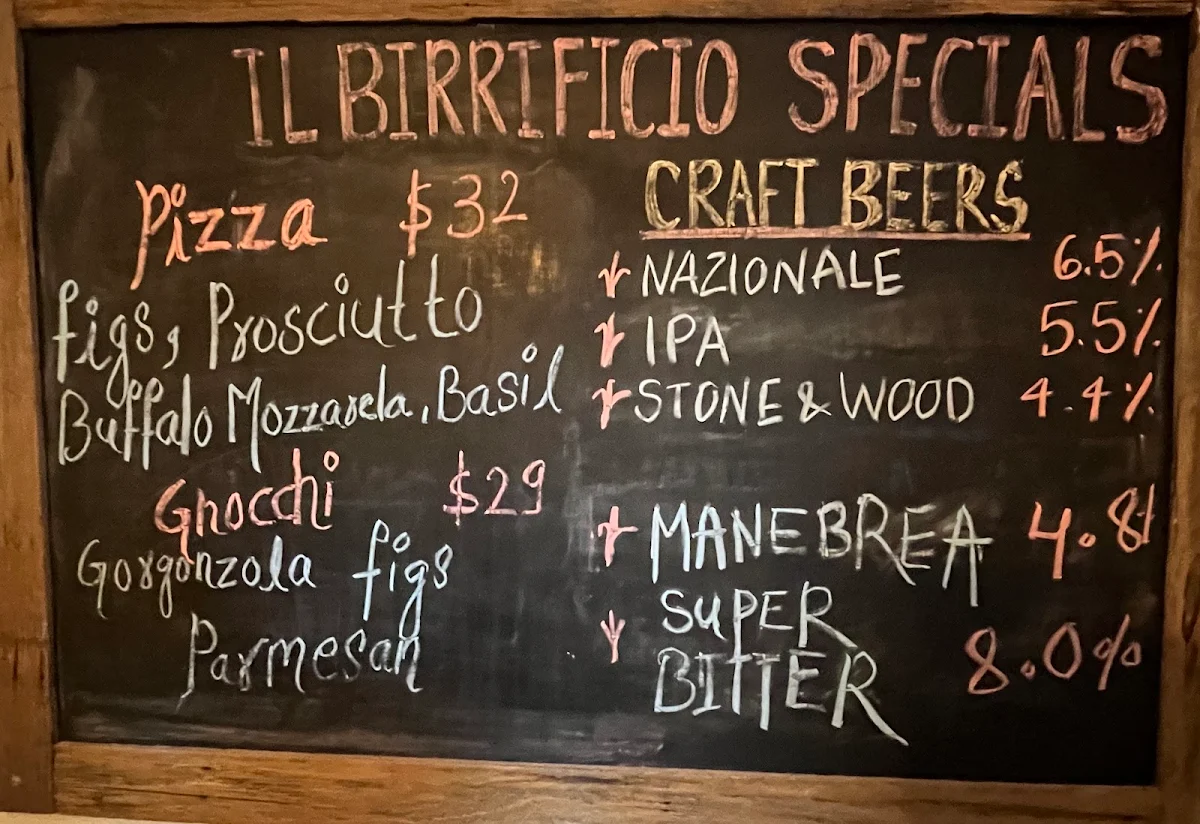 IL BIRRIFICIO SPECIALS
Pizza $32
figs, Prosciutto
Buffalo Mozzarela, Basil
Gnocchi $29
Gorgonzola figs
Parmesan
CRAFT BEERS
NAZIONALE 6.5%
IPA 5.5%
STONE & WOOD 4.4%
MANEBREA 4.8
SUPER
BITTER 8.0%